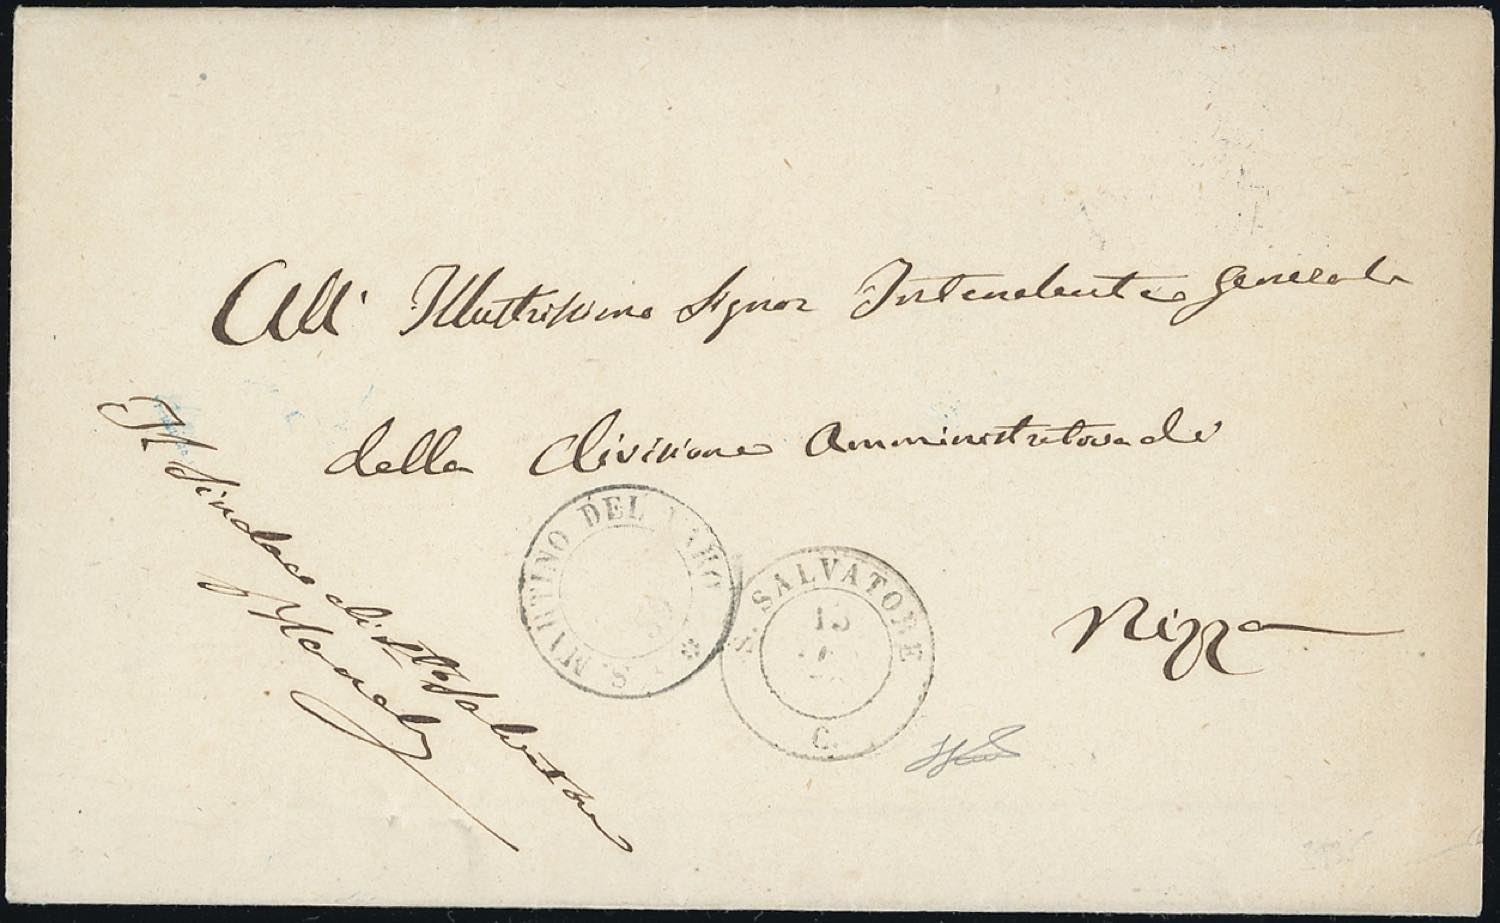 All' Illustrissimo Signor Intendente generale
della divisione amministrativa di
Nizza
Il Sindaco di S. Salvatore
S. MARTINO DEL VARO *
S. SALVATORE
13
C.